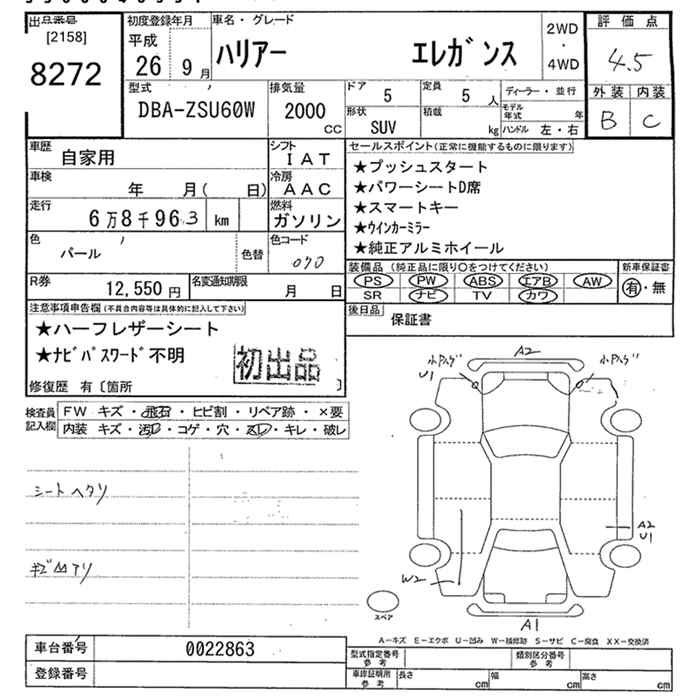 出品番号
[2158]
8272
初度登録年月
平成
26 9月
車名・グレード
ハリアー エレガンス
2WD
・
4WD
評価点
4.5
外装 内装
B C
型式
DBA-ZSU60W
排気量
2000
CC
ドア
5
定員
5 人
形状
SUV
積載
kg
ディーラー・並行
モデル年式 年
ハンドル 左・右
車歴
自家用
シフト
IAT
車検
年 月( 日)
冷房
AAC
走行
6万8千963 km
燃料
ガソリン
色
パール
色替
色コード
070
R券
12,550円
名変通知期限
月 日
セールスポイント(正常に機能するものに限ります)
★プッシュスタート
★パワーシートD席
★スマートキー
★ウインカーミラー
★純正アルミホイール
装備品(純正品に限り○をつけてください)
PS PW ABS エアB AW
SR ナビ TV カワ
新車保証書
有・無
後日品
保証書
注意事項申告欄(不具合内容等は具体的に記入して下さい)
★ハーフレザーシート
★ナビパスワード不明
初出品
修復歴 有〔箇所 〕
検査員記入欄
FW キズ・飛石・ヒビ割・リペア跡・×要
内装 キズ・汚レ・コゲ・穴・スレ・キレ・破レ
シートヘタリ
小Pハゲ
U1
A2
小Pハゲ
A2
U1
W2
A1
スペア
A-キズ E-エクボ U-凹み W-補修跡 S-サビ C-腐食 XX-交換済
車台番号
0022863
登録番号
型式指定番号
参考
類別区分番号
参考
車庫証明用
参考
長さ cm 幅 cm 高さ cm